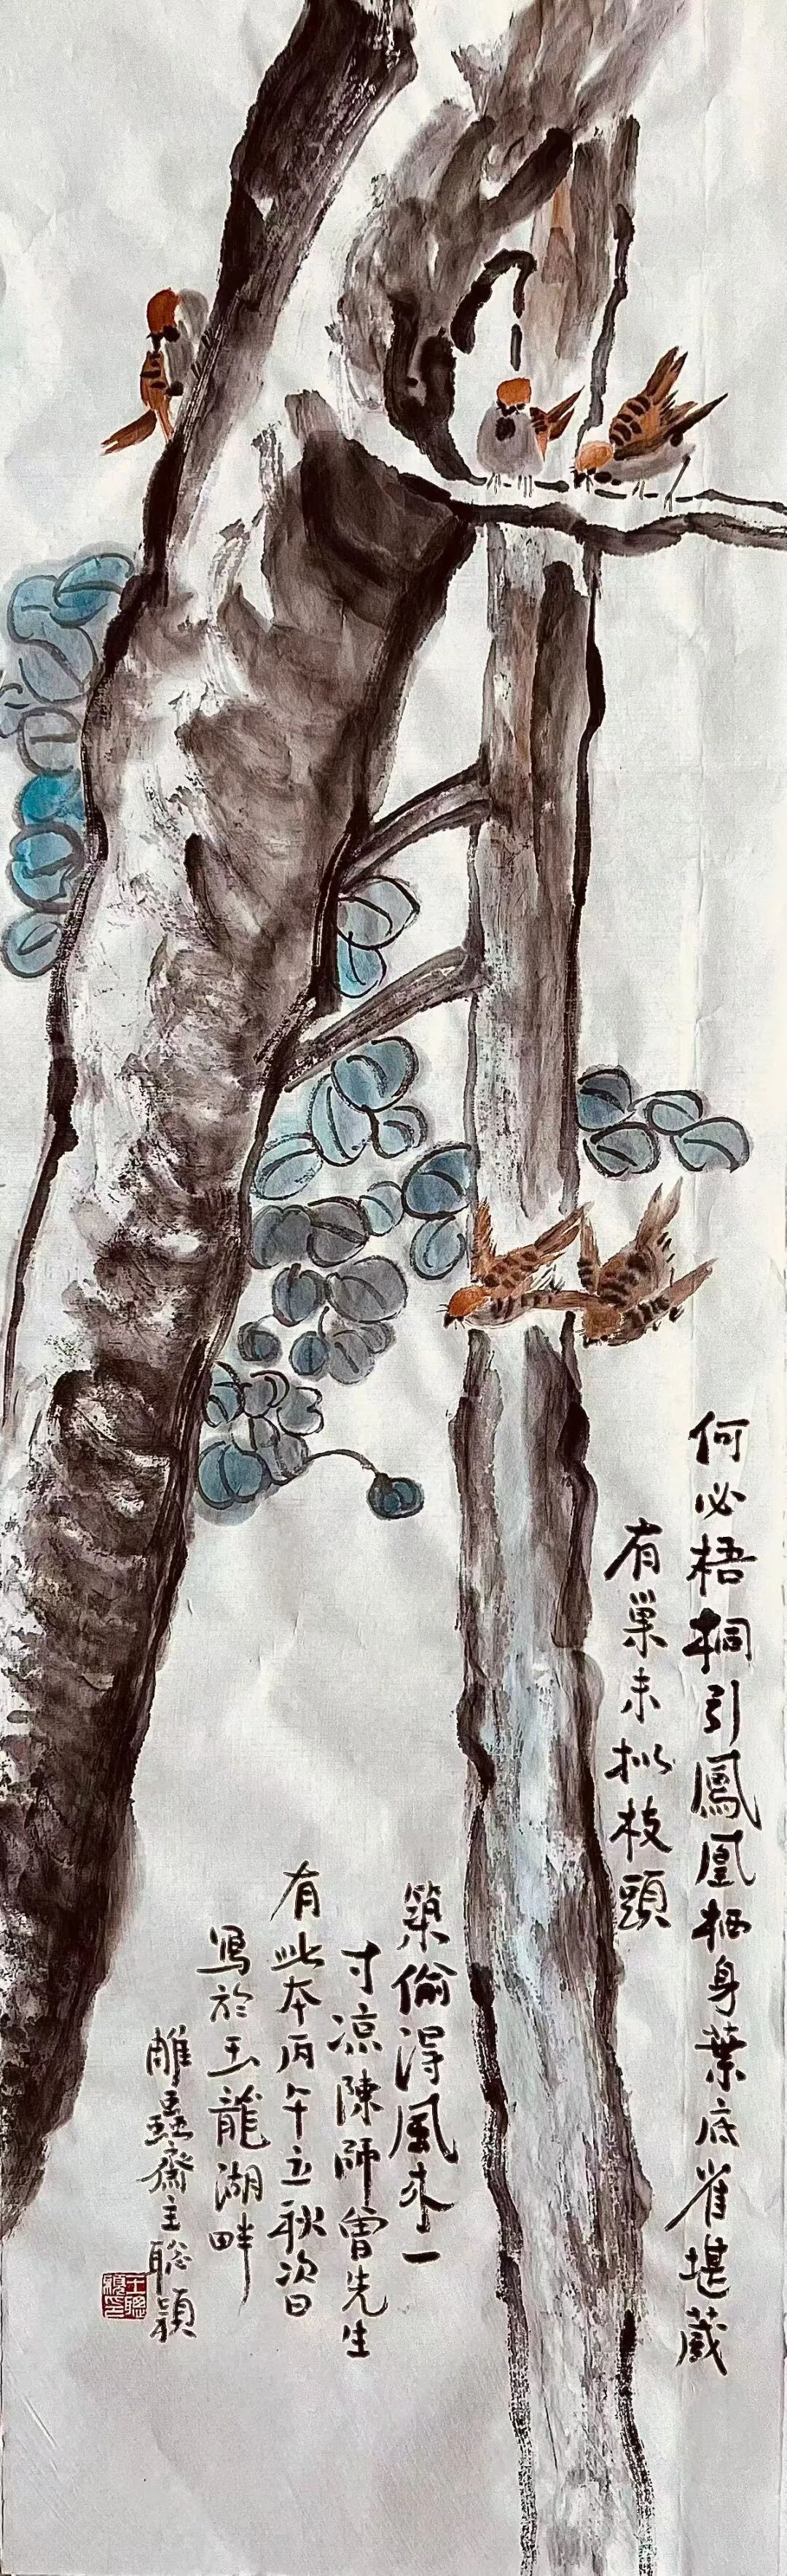 何必梧桐引鳳凰栖身葉底雀堪藏
有巢未拟枝頭
築偷得風來一
寸凉陳師曾先生
有此本丙午立秋次日
寫於玉龍湖畔
雕蟲齋主聡穎